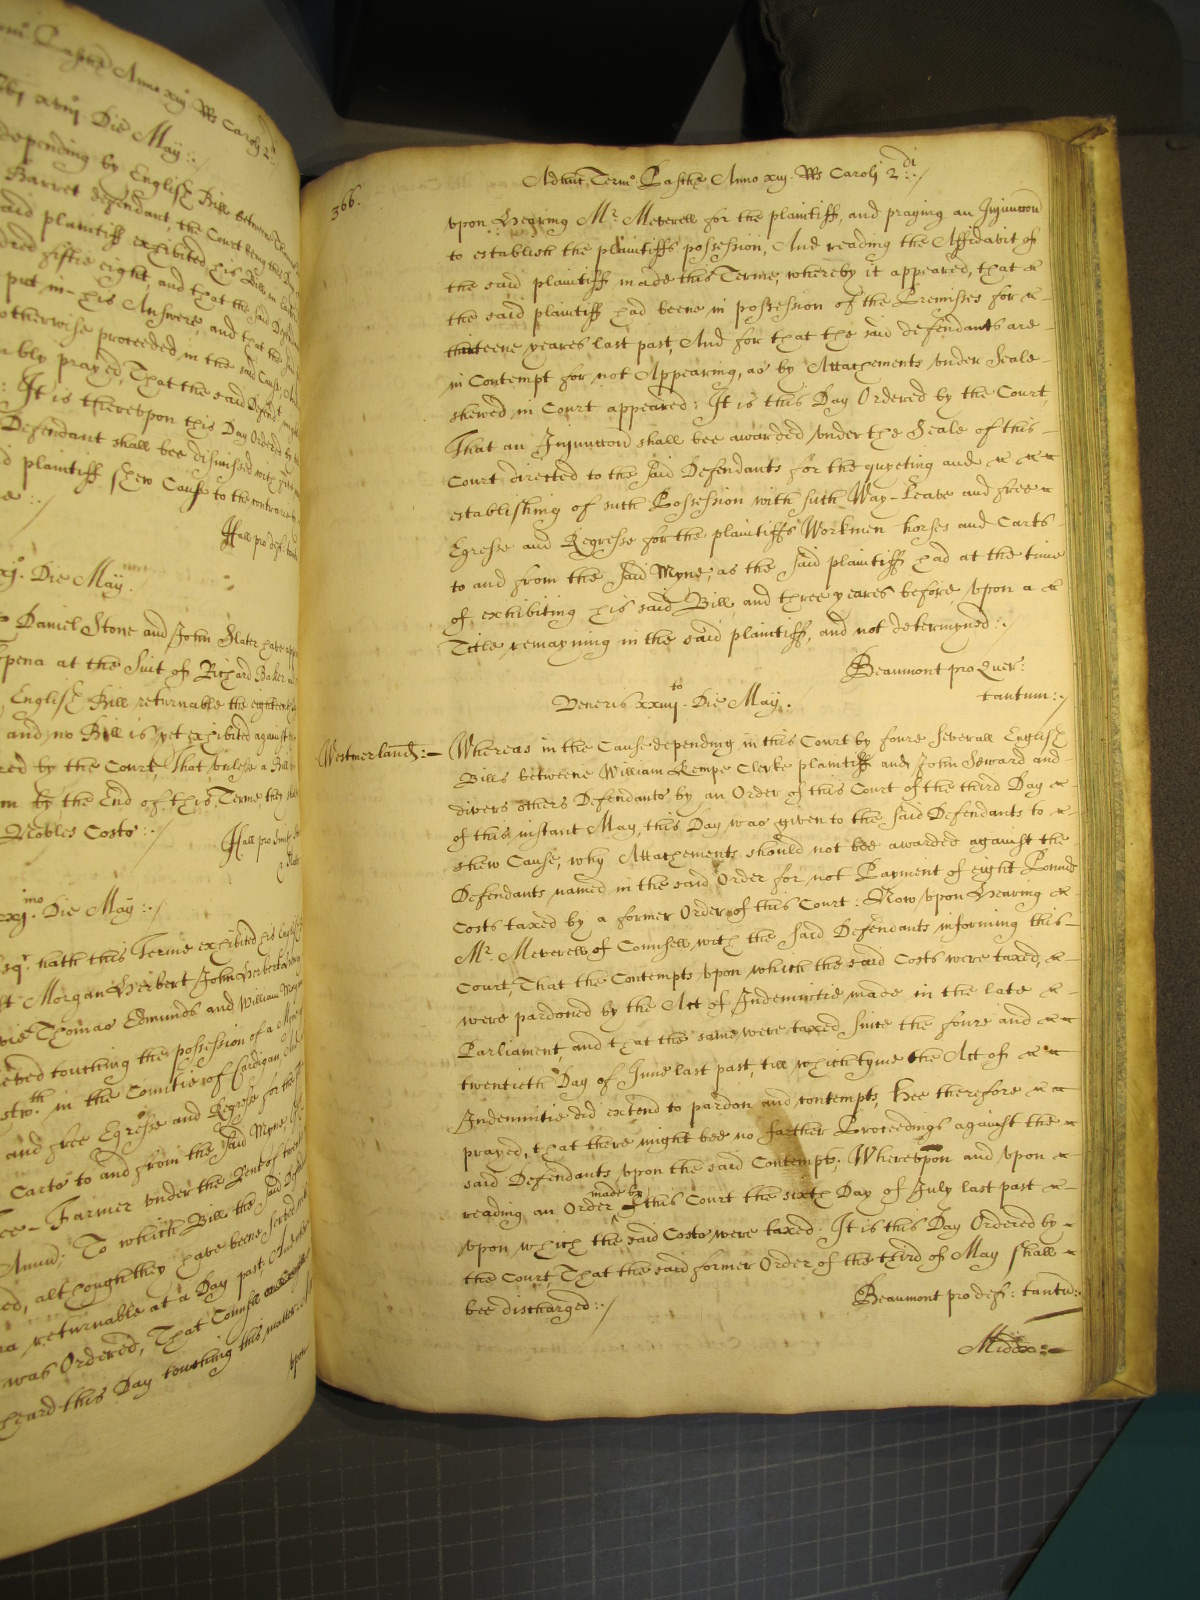 Anno xiij. Rs Caroli 2
xviij Die May:/
depending by English Bill betweene
Barret defendant, the Court being this Day
said plaintiff exhibited his Bill in
dred fiftie eight, and that the said Defend
put in his Answere, and that the
otherwise proceeded in the said Cause
bly prayed, That the said Defend might
: It is thereupon this Day Ordered by
Defendant shall bee dismissed with
d plaintiff shew Cause to the contrary
Hall pro def:
xxj. Die May.
Daniel Stone and John Slater have
pena at the Suit of Richard Baker
English Bill returnable the eighteenth
and no Bill is yet exhibited against
red by the Court, That, unlesse a Bill
m by the End of this Terme, they
Nobles Costs:/
Hall pro
xxj.mo Die May:/
Esqr. hath this Terme exhibited his English
st Morgan Herbert, John Herbert
Thomas Edmunds and William
touching the possession of a Myne
in the Countie of Cardigan, And
and free Egresse and Regresse for the
Carts to and from the said Myne,
Farmer under the Rent of
Annu; To which Bill the said Def
ed, although they have beene served with
returnable at a Day past, And
was Ordered, That Counsell
heard this Day touching this matter:
upon
366.
Adhuc, Term.o Pasche Anno xiij. Rs Caroli 2di:/
upon Hearing Mr. Meverell for the plaintiff, and praying an Injunccon
to establish the plaintiffs possession, And reading the Affidavit of
the said plaintiff made this Terme; whereby it appeared, that
the said plaintiff had beene in possession of the Premisses for
thirteene yeares last past, And for that the said defendants are
in Contempt for not Appearing, as by Attachements under Seale
shewed in Court appeared: It is this Day Ordered by the Court,
That an Injunccon shall bee awarded under the Seale of this
Court directed to the said Defendants for the quyeting and
establishing of such Possession with such Way-Leave and free
Egresse and Regresse for the plaintiffs Workmen horses and Carts
to and from the said Myne, as the said plaintiff had at the time
of exhibiting his said Bill, and three yeares before, upon a
Title remayning in the said plaintiff, and not determyned:/
Beaumont pro Quer:
tantum:/
Veneris xxiiij.to Die May.
Westmerland:- Whereas in the Cause depending in this Court by foure severall English
Bills betweene William Kempe Clerke plaintiff and John Seward and
divers others Defendants by an Order of this Court of the third Day
of this instant May, this Day was given to the said Defendants to
shew Cause, why Attachements should not bee awarded against the
Defendants named in the said Order for not Payment of eight Pounds
Costs taxed by a former Order of this Court: Now upon Hearing
Mr. Meverell of Counsell with the said Defendants informing this
Court, That the Contempts upon which the said Costs were taxed,
were pardoned by the Act of Indemnitie made in the late
Parliament, and that the same were taxed since the foure and
twentieth Day of June last past, till which tyme the Act of
Indemnitie did extend to pardon and contempts, Hee therefore
prayed, that there might bee no farther Proceedings against the
said Defendants upon the said Contempts: Whereupon and upon
reading an Order made by this Court the sixth Day of July last past
upon which the said Costs were taxed. It is this Day Ordered by
the Court, That the said former Order of the third of May shall
bee discharged:/
Beaumont pro def: tantu:
Middx:-